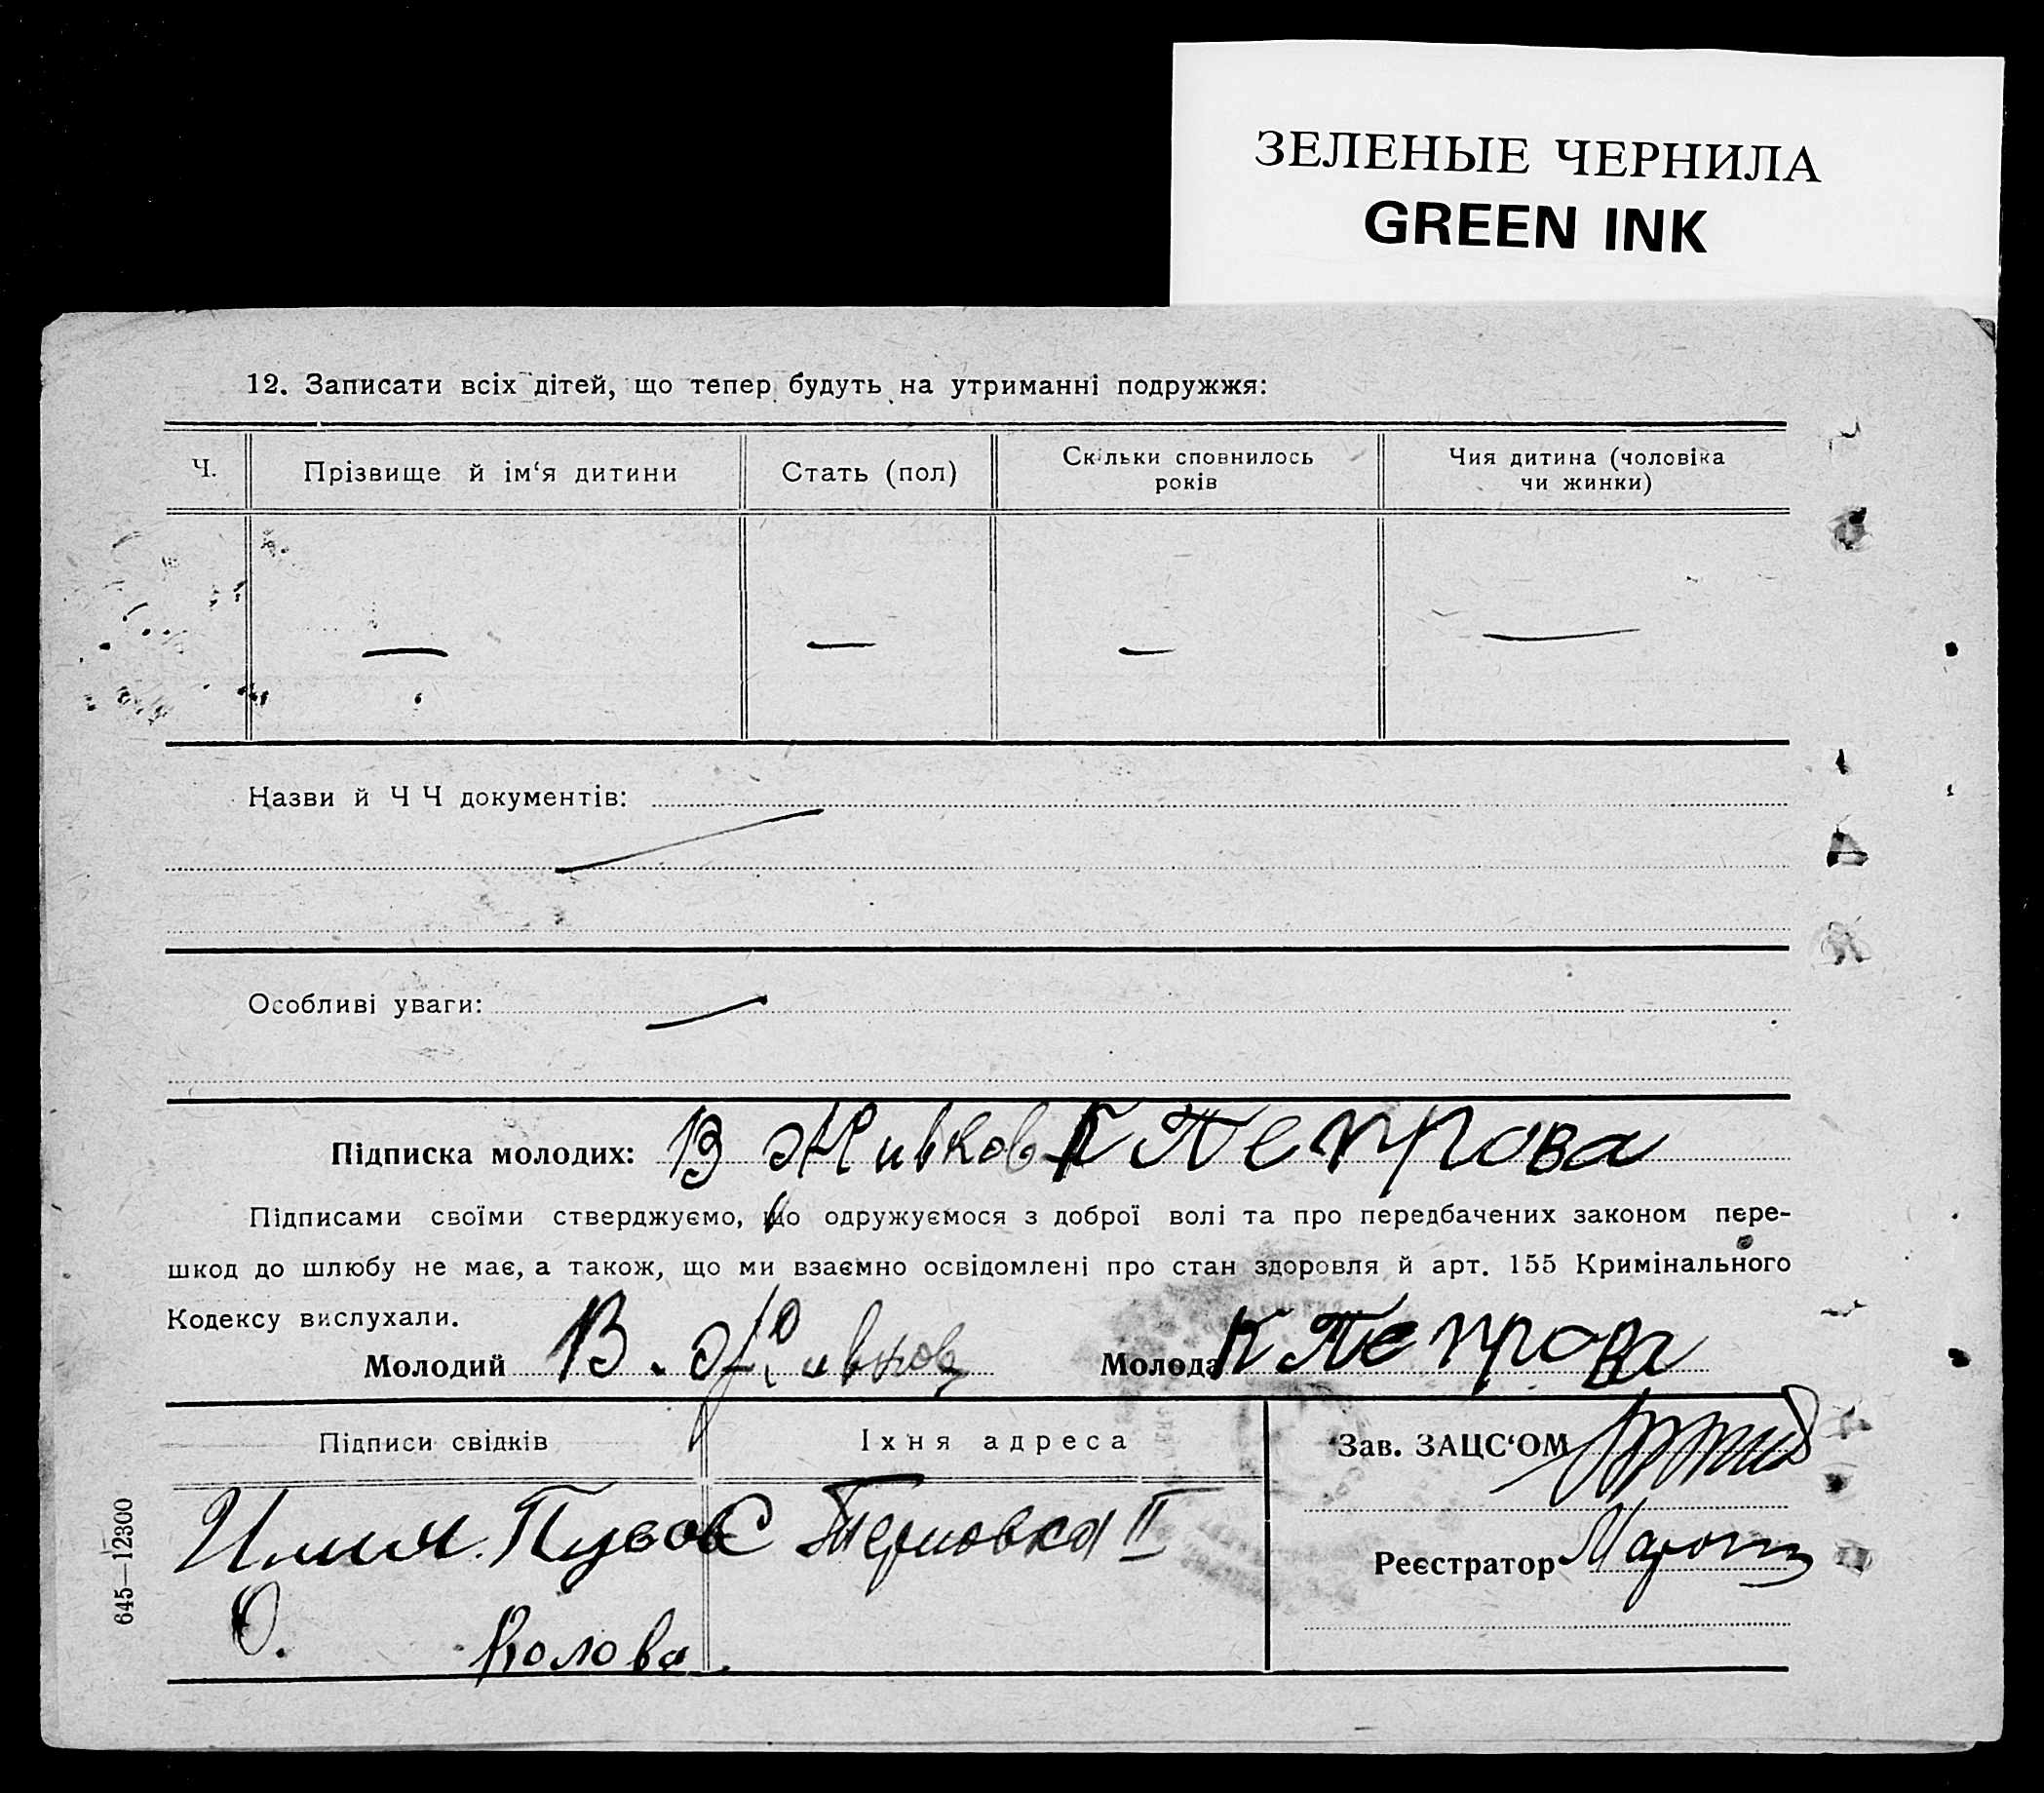 ЗЕЛЕНЫЕ ЧЕРНИЛА
GREEN INK
12. Записати всіх дітей, що тепер будуть на утриманні подружжя:
Ч. Прізвище й ім‘я дитини Стать (пол) Скільки сповнилось років Чия дитина (чоловіка чи жинки)
— — — —
Назви й Ч Ч документів:
Особливі уваги:
Підписка молодих: В Живков К Петрова
Підписами своїми стверджуємо, що одружуємося з доброї волі та про передбачених законом пере-
шкод до шлюбу не має, а також, що ми взаємно освідомлені про стан здоровля й арт. 155 Кримінального
Кодексу вислухали.
Молодий В. Живков Молода К Петрова
Підписи свідків Їхня адреса Зав. ЗАЦС‘ОМ
с Терновка II
Реєстратор
О. Колова
645—12300